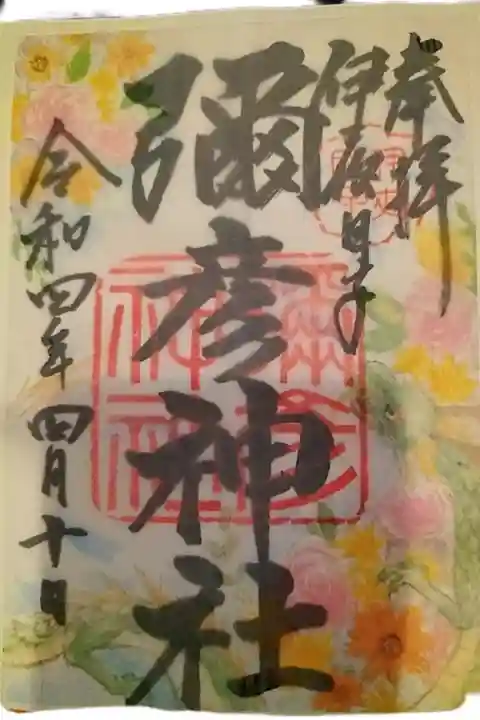 奉拝
伊夜日子
彌彦神社
令和四年四月十日